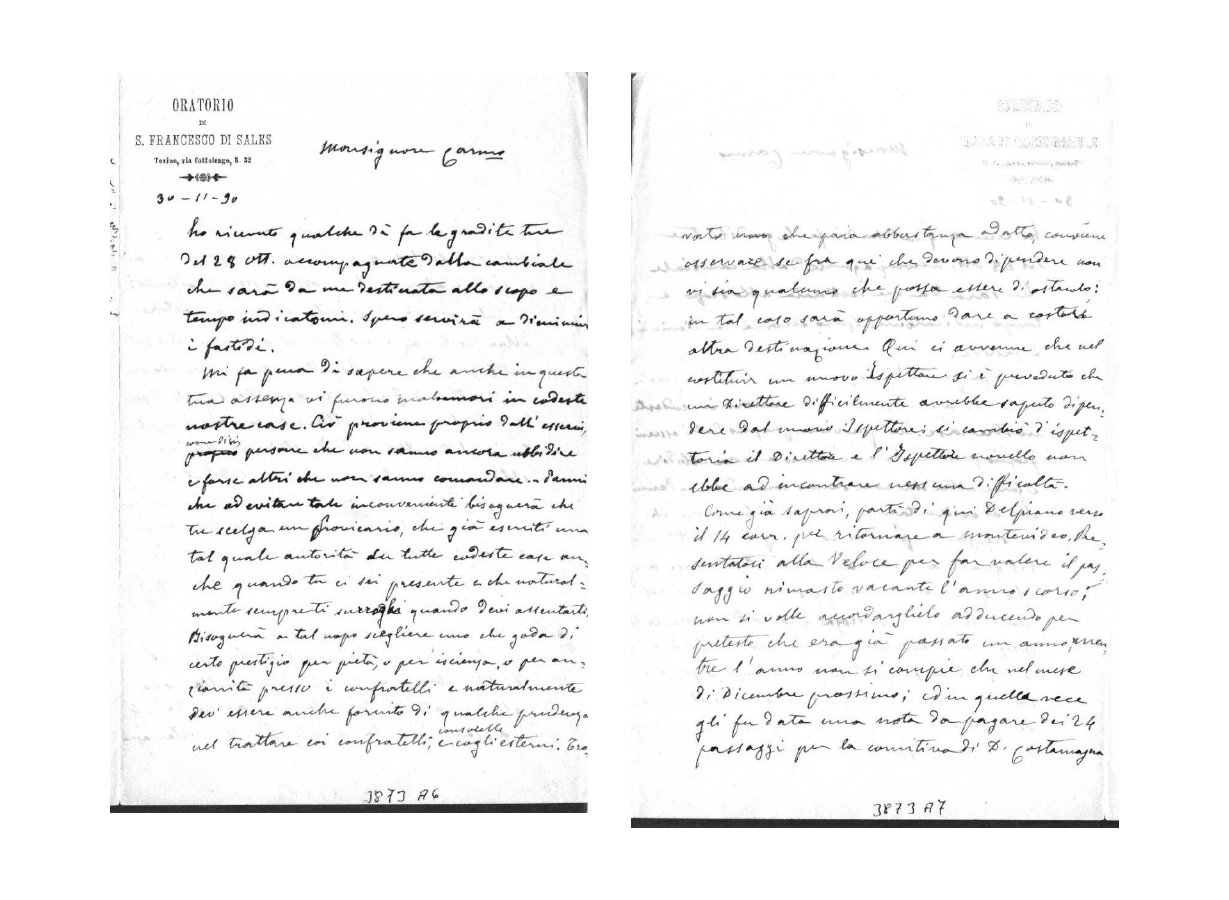 ORATORIO
DI
S. FRANCESCO DI SALES
Torino, via Cottolengo, N. 32
30-11-90
Monsignore Carmo
ho ricevuto qualche dì fa la gradita tua
del 28 Ott. accompagnata dalla cambiale
che sarà da me destinata allo scopo e
tempo indicatomi. Spero servirà a diminuir
i fastidi.
Mi fa pena di sapere che anche in questa
tua assenza vi furono malumori in codeste
nostre case. Ciò proviene proprio dall'esservi,
come dissi
persone che non sanno ancora ubbidire
e forse altri che non sanno comandare.
che ad evitare tale inconveniente bisognerà che
tu scelga un Provicario, che già eserciti una
tal quale autorità su tutte codeste case an-
che quando tu ci sei presente e che natural-
mente sempre ti surroghi quando devi assentarti.
Bisognerà a tal uopo scegliere uno che goda di
certo prestigio per pietà, o per iscienza, o per an-
zianità presso i confratelli e naturalmente
dev'essere anche fornito di qualche prudenza
nel trattare coi confratelli, e cogli esterni. Tro-
3873 A6
vato uno che paia abbastanza adatto, conviene
osservare se fra quei che devono dipendere non
vi sia qualcuno che possa essere di ostacolo:
in tal caso sarà opportuno dare a costui
altra destinazione. Qui ci avvenne che nel
costituir un nuovo Ispettore si è preveduto che
un Direttore difficilmente avrebbe saputo dipen-
dere dal nuovo Ispettore: si cambiò d'ispet-
toria il Direttore e l'Ispettore novello non
ebbe ad incontrare nessuna difficoltà.
Come già saprai, partì di qui Delpiano verso
il 14 corr. per ritornare a Montevideo. Pre-
sentatosi alla Veloce per far valere il pas-
saggio rimasto vacante l'anno scorso,
non si volle accordarglielo adducendo per
pretesto che era già passato un anno, men-
tre l'anno non si compie che nel mese
di Dicembre prossimo; ed in quella vece
gli fu data una nota da pagare dei 24
passaggi per la comitiva di D. Costamagna
3873 A7